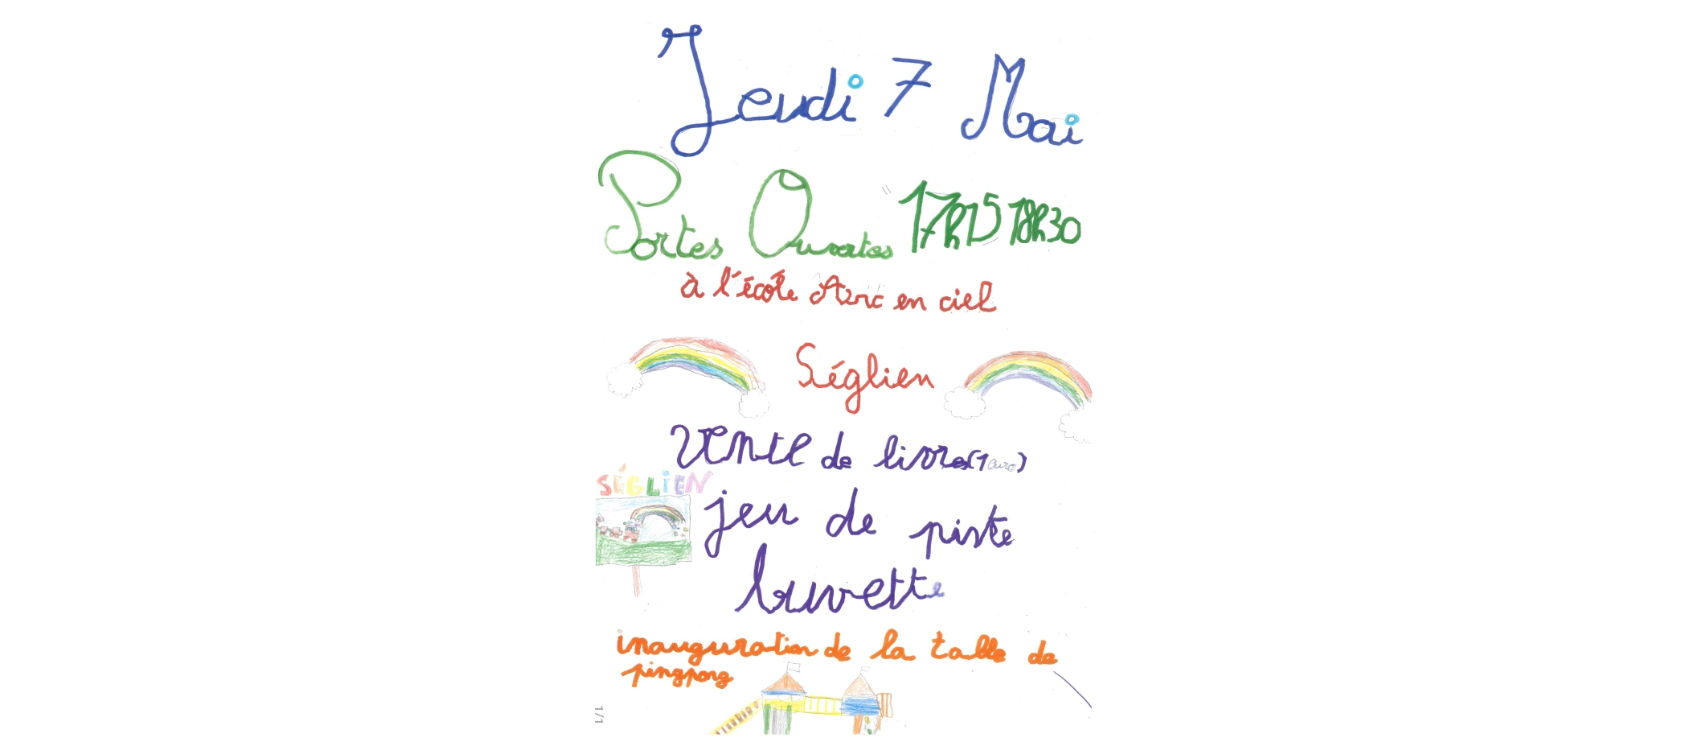 Jeudi 7 Mai
Portes Ouvertes 17h15 18h30
à l'école Arc en ciel
Séglien
Vente de livres (1 euro)
SÉGLIEN
jeu de piste
buvette
inauguration de la table de
pingpong
1/1